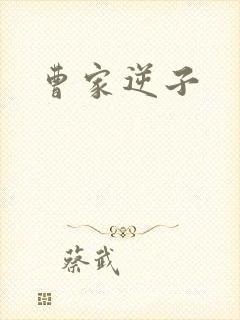 曹家逆子
蔡武